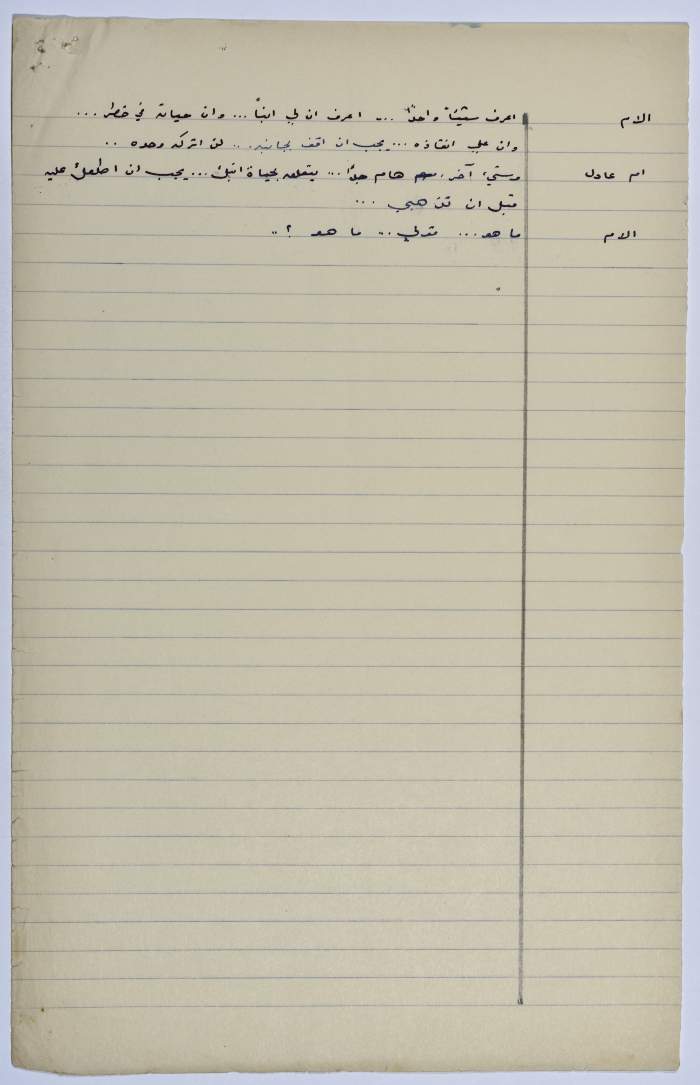 الام اعرف شيئاً واحداً ... اعرف ان لي ابناً ... وان حياته في خطر ...
وان علي انقاذه ... يجب ان اقف بجانبه ... لن اتركه وحده ..
ام عادل وشيء آخر هام جداً ... يتعلق بحياة ابنك ... يجب ان اطلعك عليه
قبل ان تذهبي ...
الام ما هو ... قولي .. ما هو ؟ ..